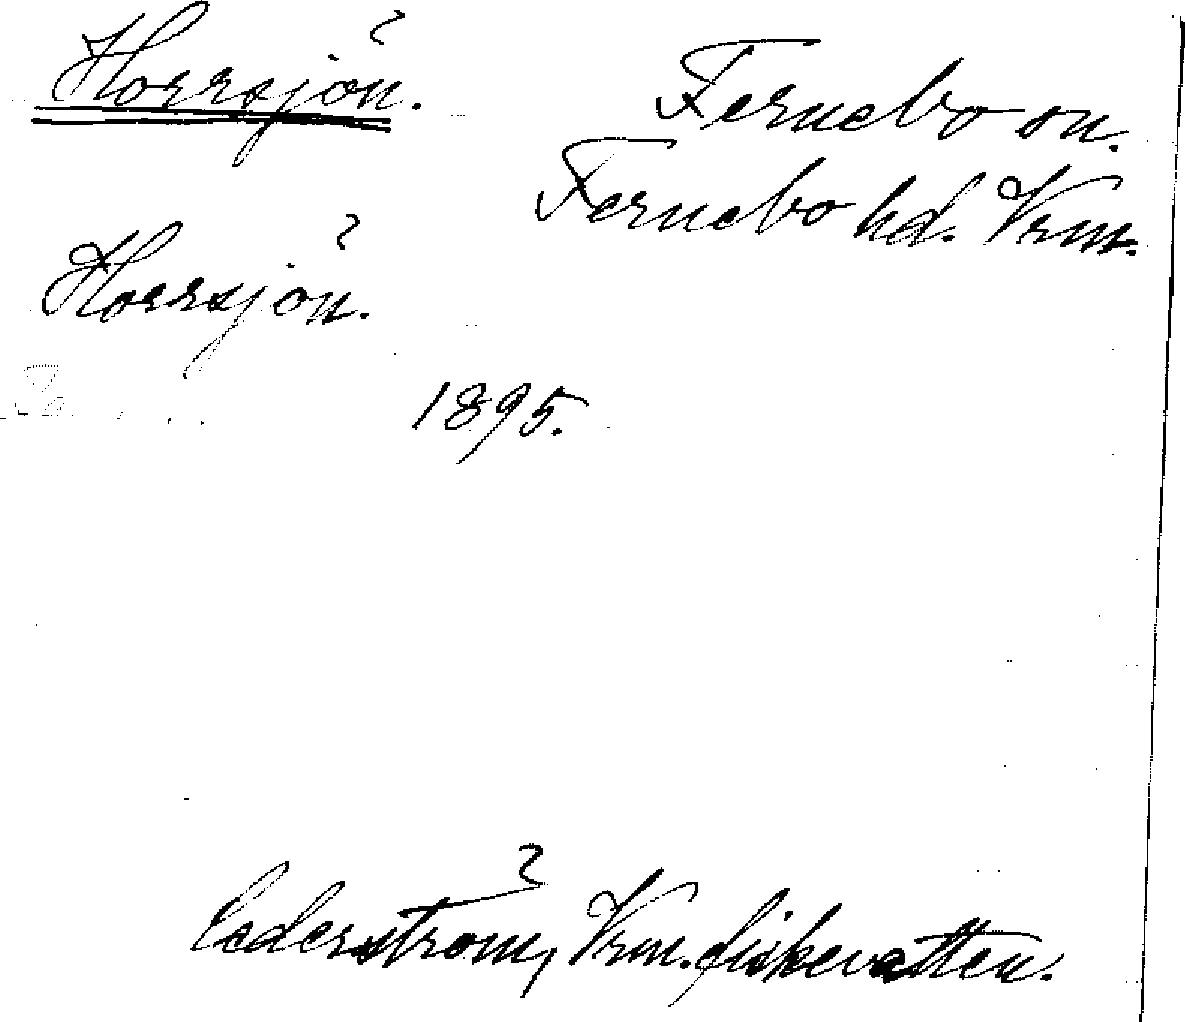 Horrsjön.
Fernebo sn.
Fernebo hd. Vrm.
Horrsjön.
1895.
Cederström, Vrm. fiskevatten.